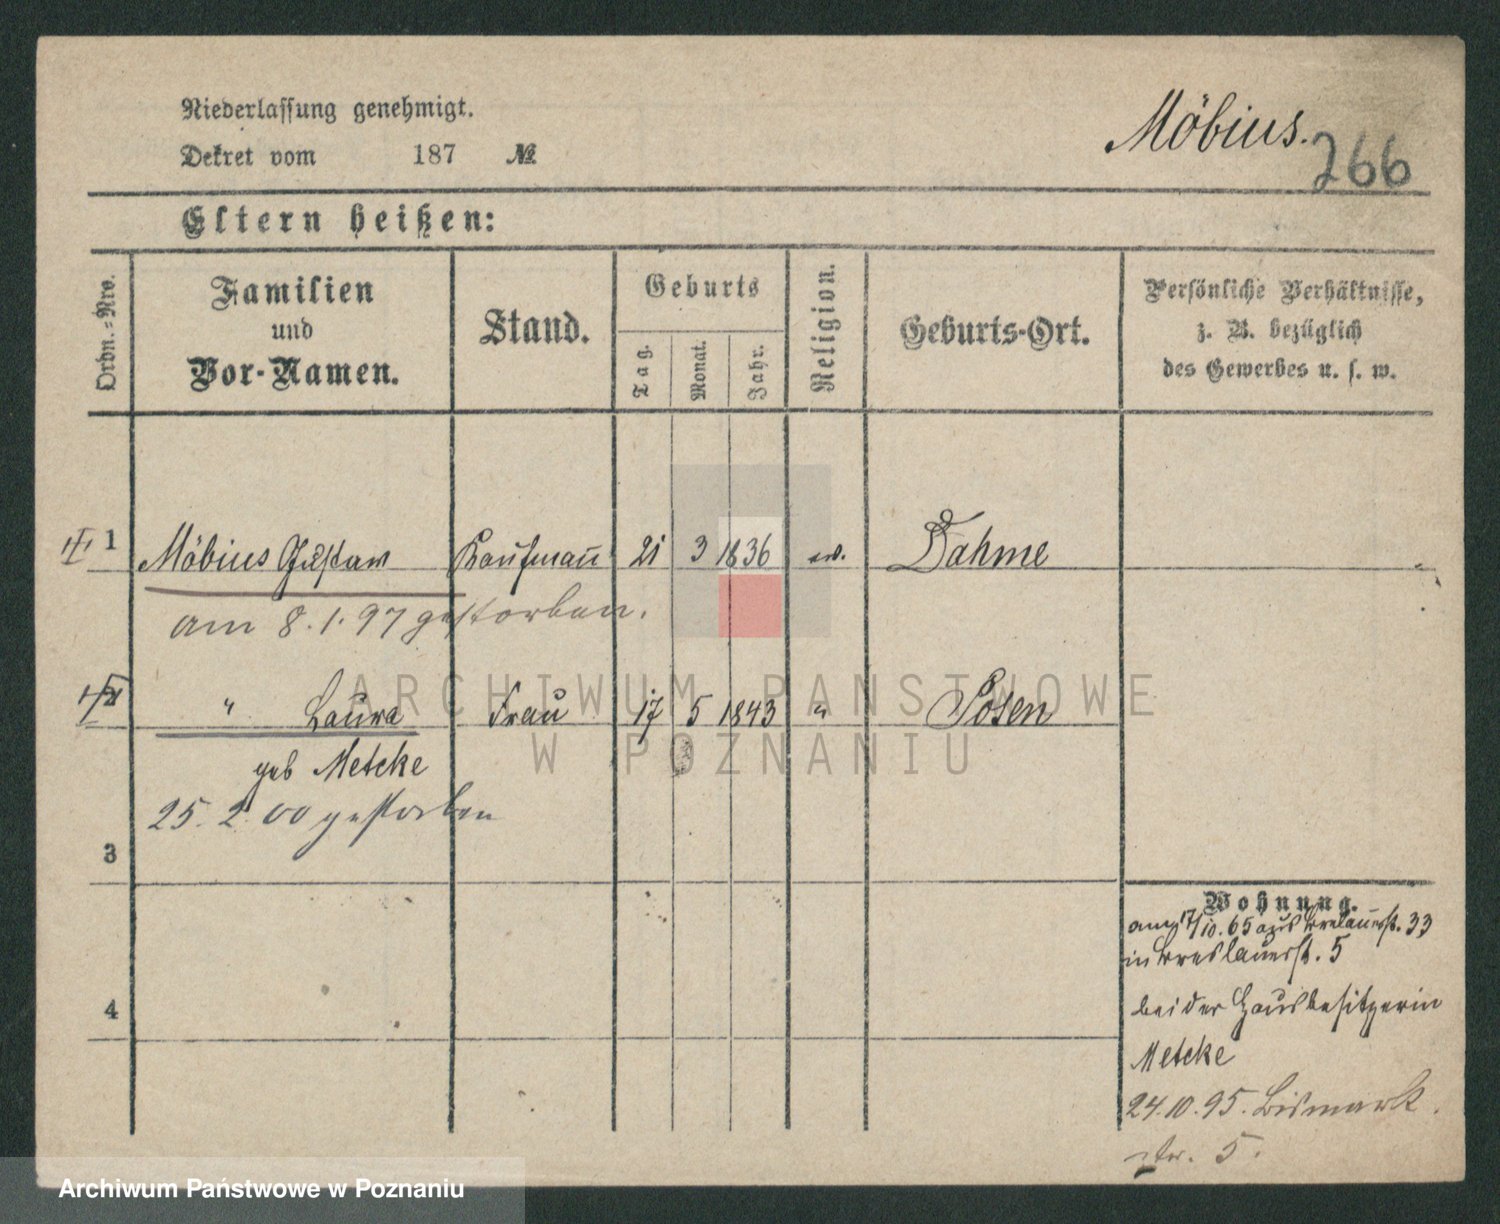 Niederlassung genehmigt.
Dekret vom 187 №
Möbius.
266
Eltern heißen:
Ordn.=Nro.
Familien
und
Vor-Namen.
Stand.
Geburts
Tag.
Monat.
Jahr.
Religion.
Geburts-Ort.
Persönliche Verhältnisse,
z. B. bezüglich
des Gewerbes u. s. w.
1 Möbius Gustav Kaufmann 21 3 1836 ev. Dahme
am 8.1.97 gestorben.
2 " Laura Frau 17 5 1843 " Posen
geb Metcke
25. 2. 00 gestorben
3
4
Wohnung.
am 17/10. 65 aus Breslauerst. 33
in Breslauerst. 5
bei der Hausbesitzerin
Metcke
24.10.95. Bismark
str. 5.
ARCHIWUM PAŃSTWOWE
W POZNANIU
Archiwum Państwowe w Poznaniu